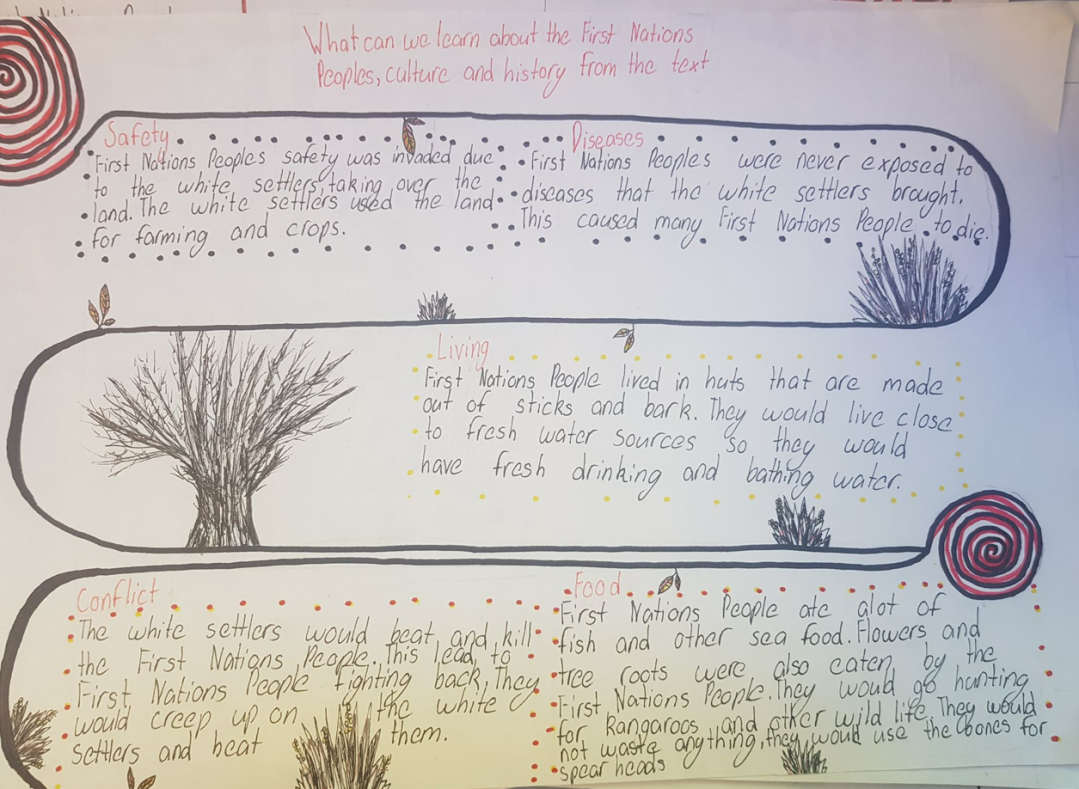 What can we learn about the First Nations
Peoples, culture and history from the text
Safety
First Nations Peoples safety was invaded due
to the white settlers, taking over the
land. The white settlers used the land
for farming and crops.
Diseases
First Nations Peoples were never exposed to
diseases that the white settlers brought.
This caused many First Nations People to die.
Living
First Nations People lived in huts that are made
out of sticks and bark. They would live close
to fresh water sources so they would
have fresh drinking and bathing water.
Conflict
The white settlers would beat and kill
the First Nations People. This lead to
First Nations People fighting back. They
would creep up on the white
settlers and beat them.
Food
First Nations People ate alot of
fish and other sea food. Flowers and
tree roots were also eaten by the
First Nations People. They would go hunting
for kangaroos and other wild life. They would
not waste anything, they would use the bones for
spear heads